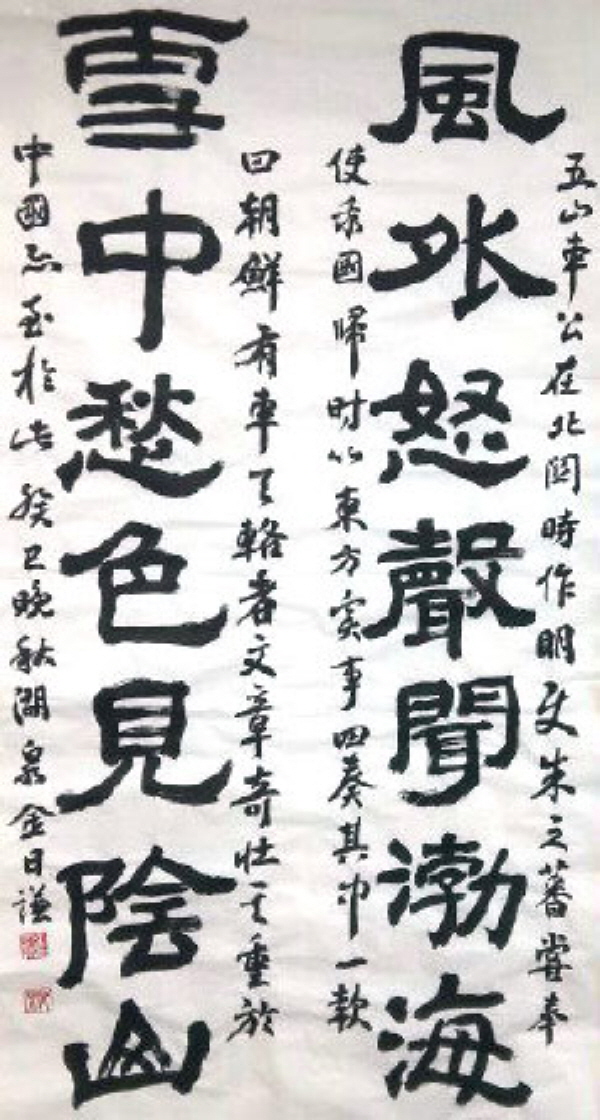 五山車公在北関時作明史朱之蕃嘗奉
風外怒聲聞渤海
使我國歸時以東方实事回奏其中一款
曰朝鮮有車天輅者文章奇壯其重於
雪中愁色見陰山
中國亦至於此 癸巳晚秋湖泉金日謙